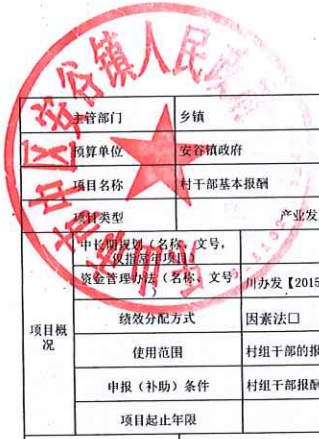 市中区安谷镇人民政府
主管部门 乡镇
预算单位 安谷镇政府
项目名称 村干部基本报酬
项目类型 产业发
中长期规划（名称、文号，
仅指跨年项目）
资金管理办法（名称、文号） 川办发【2015
项目概况
绩效分配方式 因素法□
使用范围 村组干部的报
申报（补助）条件 村组干部报酬
项目起止年限